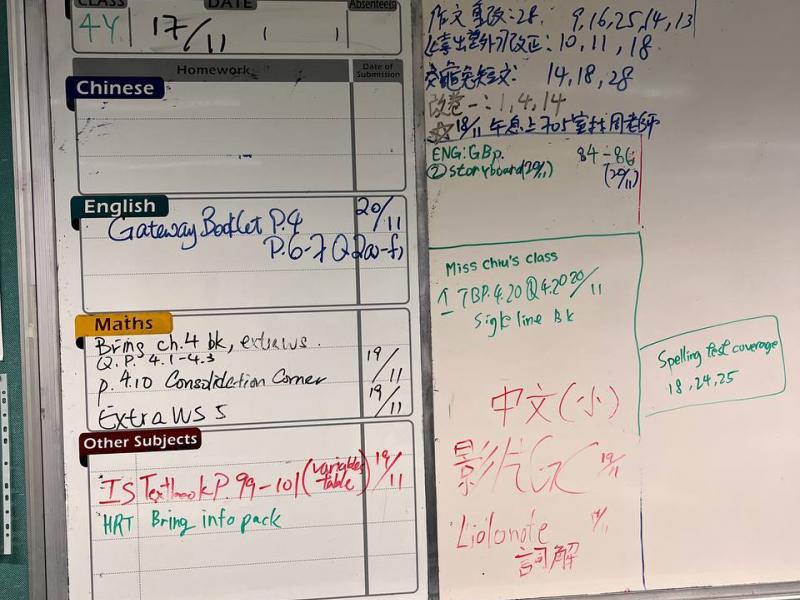 CLASS DATE Absentee(s)
4Y 17/11
Homework Date of Submission
Chinese
English
Gateway Booklet P.4 20/11
P.6-7 Q2(a-f)
Maths
Bring ch.4 bk, extra ws.
Q.P. 4.1-4.3
p. 4.10 Consolidation Corner 19/11
Extra WS 5 19/11
Other Subjects
IS Textbook P. 99-101 (variables table) 19/11
HRT Bring info pack
作文重改:28. 9,16,25,14,13
改正:10,11,18
14,18,28
改卷一:1,4,14
☆18/11 午息上705室找周老師
ENG:GBp. 84-86
② storyboard(20/11) (20/11)
Miss Chiu's class
TBP.4.20 Q4.20 20/11
line Bk
Spelling test coverage
18,24,25
中文(小)
影片GC 19/11
詞解